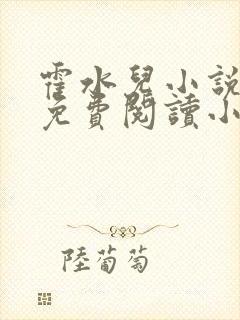 霍水兒小說
免費閱讀小
陸葡萄